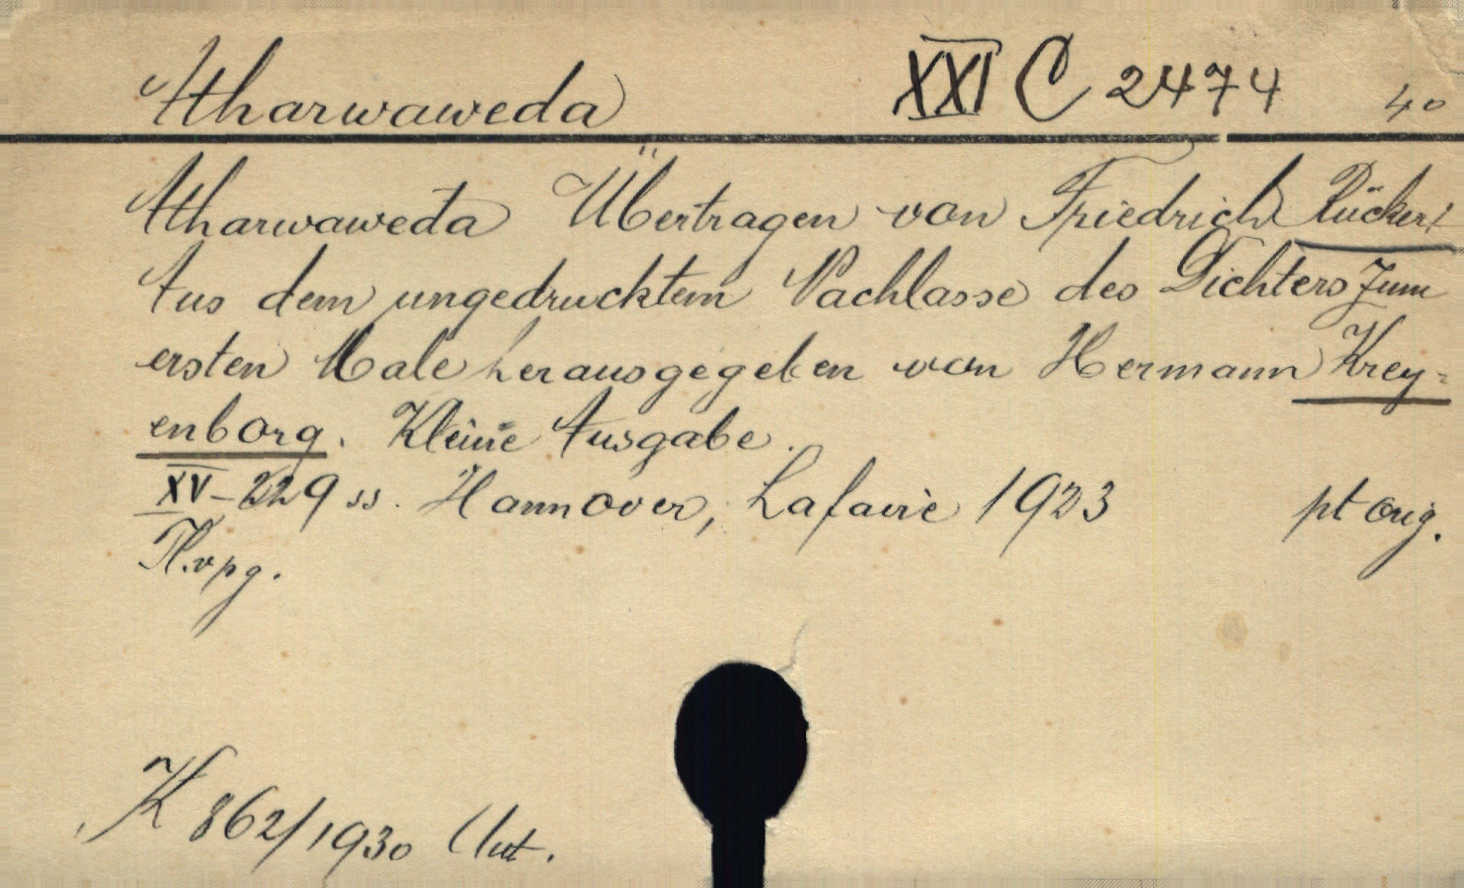 Atharwaweda XXI C 2474 4o
Atharwaweda Übertragen von Friedrich Rückert
Aus dem ungedrucktem Nachlasse des Dichters zum
ersten Male herausgegeben von Hermann Krey-
enborg. Kleine Ausgabe.
XV-229 ss. Hannover, Lafaire 1923 pt orig.
K 862/1930 Aut.